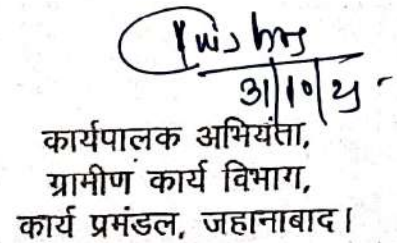 31/10/25
कार्यपालक अभियंता,
ग्रामीण कार्य विभाग,
कार्य प्रमंडल, जहानाबाद।